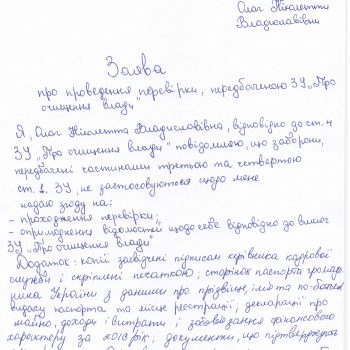 Олаг Ніколетти
Владиславівни
Заява
про проведення перевірки, передбаченою ЗУ „Про
очищення влади"
Я, Олаг Ніколетта Владиславівна, відповідно до ст. 4
ЗУ „Про очищення влади" повідомляю, що заборони,
передбачені частинами третьою та четвертою
ст. 1. ЗУ, не застосовуються щодо мене
надаю згоду на:
- проходження перевірки;
- оприлюднення відомостей щодо себе відповідно до вимог
ЗУ „Про очищення влади"
Додаток: копії завірені підписом керівника кадрової
служби і скріплені печаткою; сторінок паспорта громадя-
нина України з даними про прізвище, ім'я та по-батькові
видачу паспорта та місце реєстрації; декларації про
майно, доходи і витрати і зобов'язання фінансового
характеру за рік; документи, що підтверджують